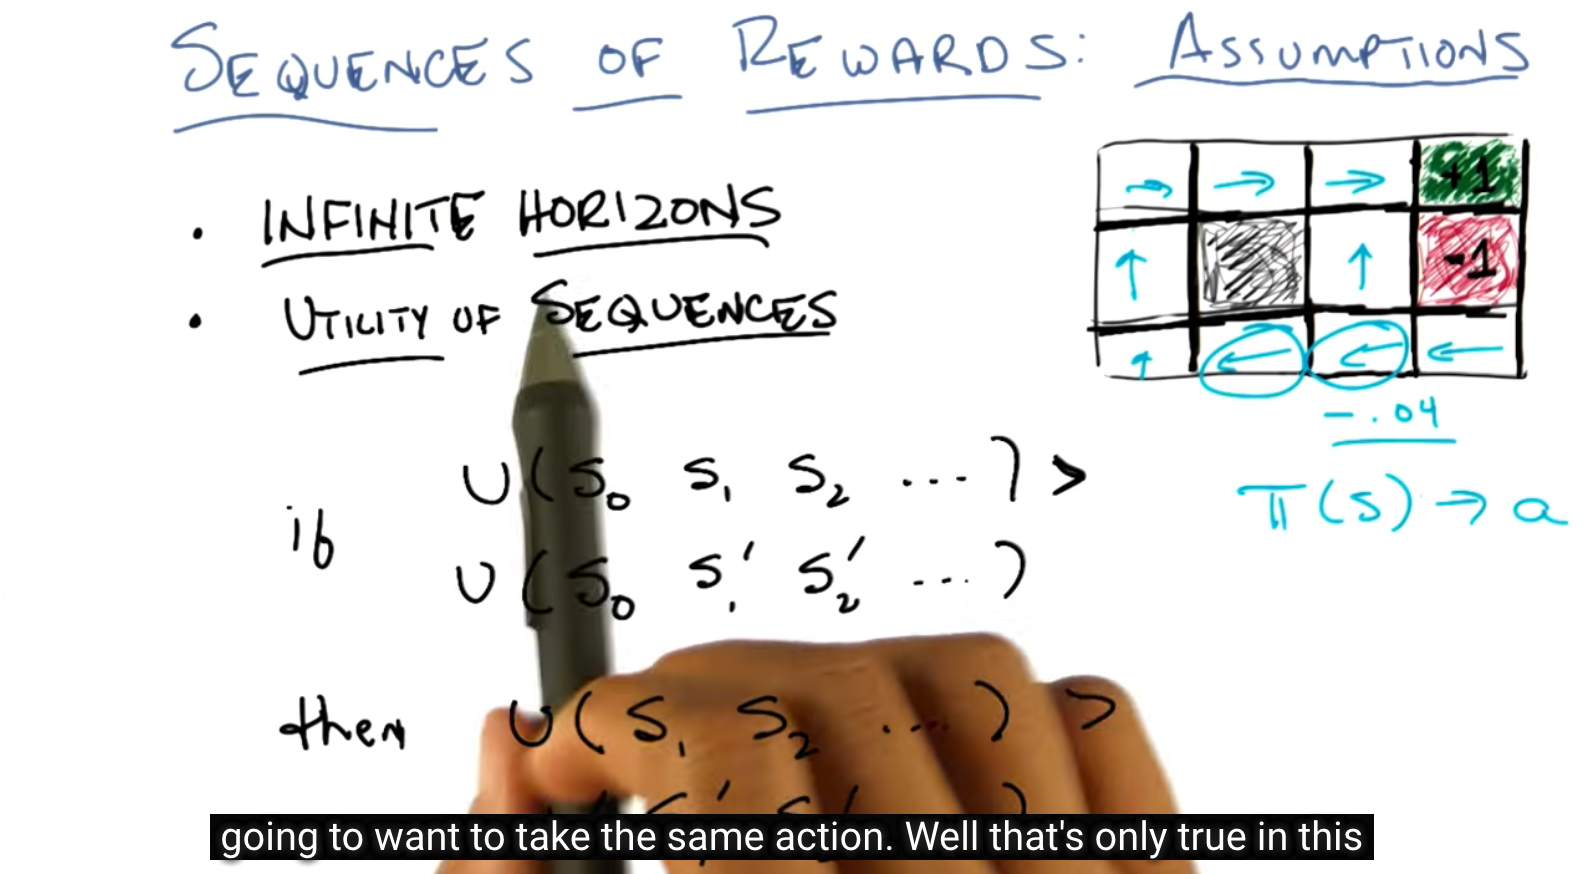 SEQUENCES OF REWARDS: ASSUMPTIONS
• INFINITE HORIZONS
• UTILITY OF SEQUENCES
+1
-1
-.04
π(s) → a
if U(S₀ S₁ S₂ ...) >
U(S₀ S₁′ S₂′ ...)
then U(S₁ S₂ ...) >
going to want to take the same action. Well that's only true in this